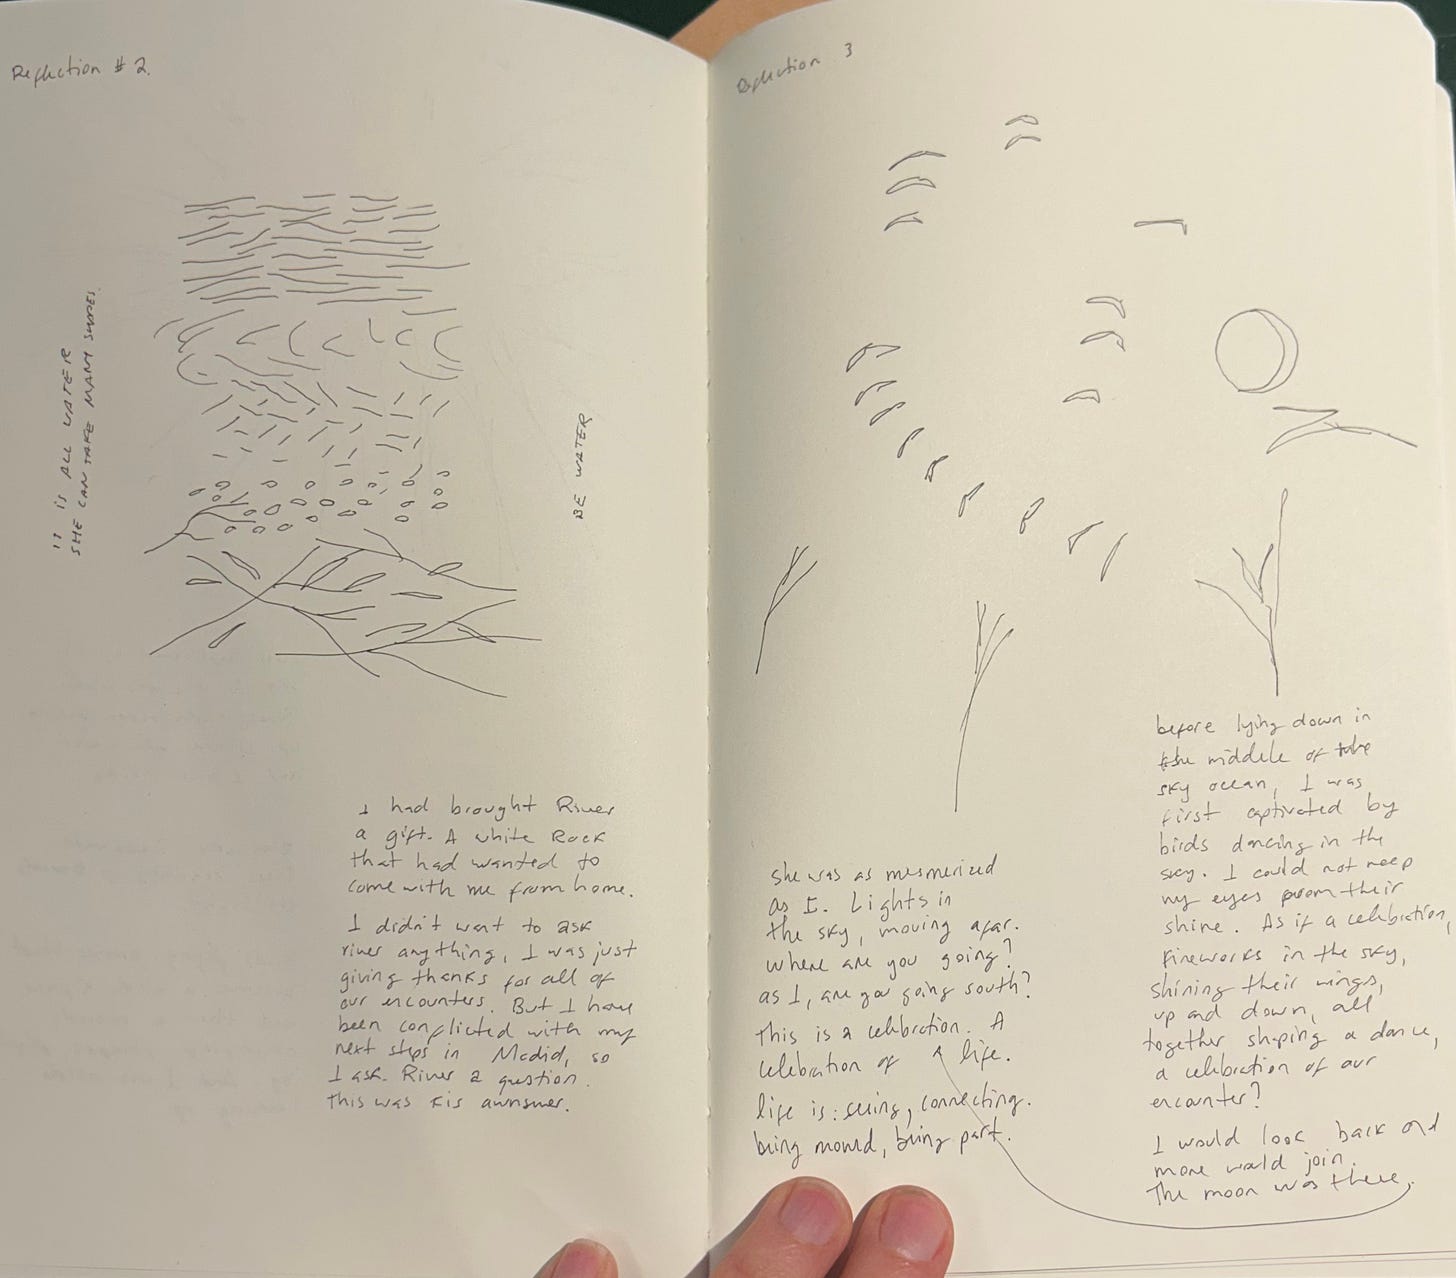 Reflection # 2.
IT IS ALL WATER
SHE CAN TAKE MANY SHAPES.
BE WATER
I had brought River
a gift. A white Rock
that had wanted to
come with me from home.
I didn't want to ask
river anything, I was just
giving thanks for all of
our encounters. But I have
been conflicted with my
next steps in Madrid, so
I ask River a question.
This was his awnswer.
Reflection 3
she was as mesmerized
as I. Lights in
the sky, moving afar.
where are you going?
as I, are you going south?
This is a celebration. A
celebration of life.
life is: seeing, connecting.
being moved, being part.
before lying down in
the middle of the
sky ocean, I was
first captivated by
birds dancing in the
sky. I could not keep
my eyes from their
shine. As if a celebration,
fireworks in the sky,
shining their wings,
up and down, all
together shaping a dance,
a celebration of our
encounter?
I would look back and
more would join.
The moon was there,